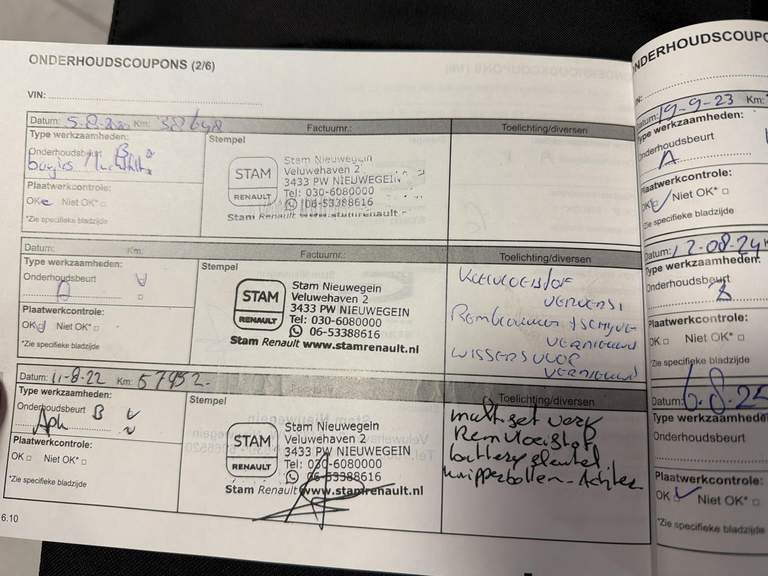 ONDERHOUDSCOUPONS (2/6)
VIN:
Datum: Km: Factuurnr.: Toelichting/diversen
Type werkzaamheden: Stempel
Onderhoudsbeurt B
Plaatwerkcontrole:
OK Niet OK*
*Zie specifieke bladzijde
STAM
RENAULT
Stam Nieuwegein
Veluwehaven 2
3433 PW NIEUWEGEIN
Tel: 030-6080000
06-53388616
Stam Renault www.stamrenault.nl
Datum: Km: Factuurnr.: Toelichting/diversen
Type werkzaamheden: Stempel
Onderhoudsbeurt
A
Plaatwerkcontrole:
OK Niet OK*
*Zie specifieke bladzijde
STAM
RENAULT
Stam Nieuwegein
Veluwehaven 2
3433 PW NIEUWEGEIN
Tel: 030-6080000
06-53388616
Stam Renault www.stamrenault.nl
KOELVLOEISTOF
VERVERST
VERNIEUWD
WISSERS VOOR
VERNIEUWD
Datum: 11-8-22 Km: 57952 Factuurnr.: Toelichting/diversen
Type werkzaamheden: Stempel
Onderhoudsbeurt B
Apk
Plaatwerkcontrole:
OK Niet OK*
*Zie specifieke bladzijde
STAM
RENAULT
Stam Nieuwegein
Veluwehaven 2
3433 PW NIEUWEGEIN
Tel: 030-6080000
06-53388616
Stam Renault www.stamrenault.nl
Remvloeistof
batterij sleutel
knipperbollen - Achter
6.10
NDERHOUDSCOUPO
VIN:
Datum: 19-9-23 Km:
Type werkzaamheden:
Onderhoudsbeurt
A
Plaatwerkcontrole:
OK Niet OK*
*Zie specifieke bladzijde
12-08-24
Type werkzaamheden:
Onderhoudsbeurt
B
Plaatwerkcontrole:
OK Niet OK*
*Zie specifieke bladzijde
Datum: 6.8.25
Type werkzaamheden
Onderhoudsbeurt
Plaatwerkcontrole:
OK Niet OK*
*Zie specifieke bladzijde